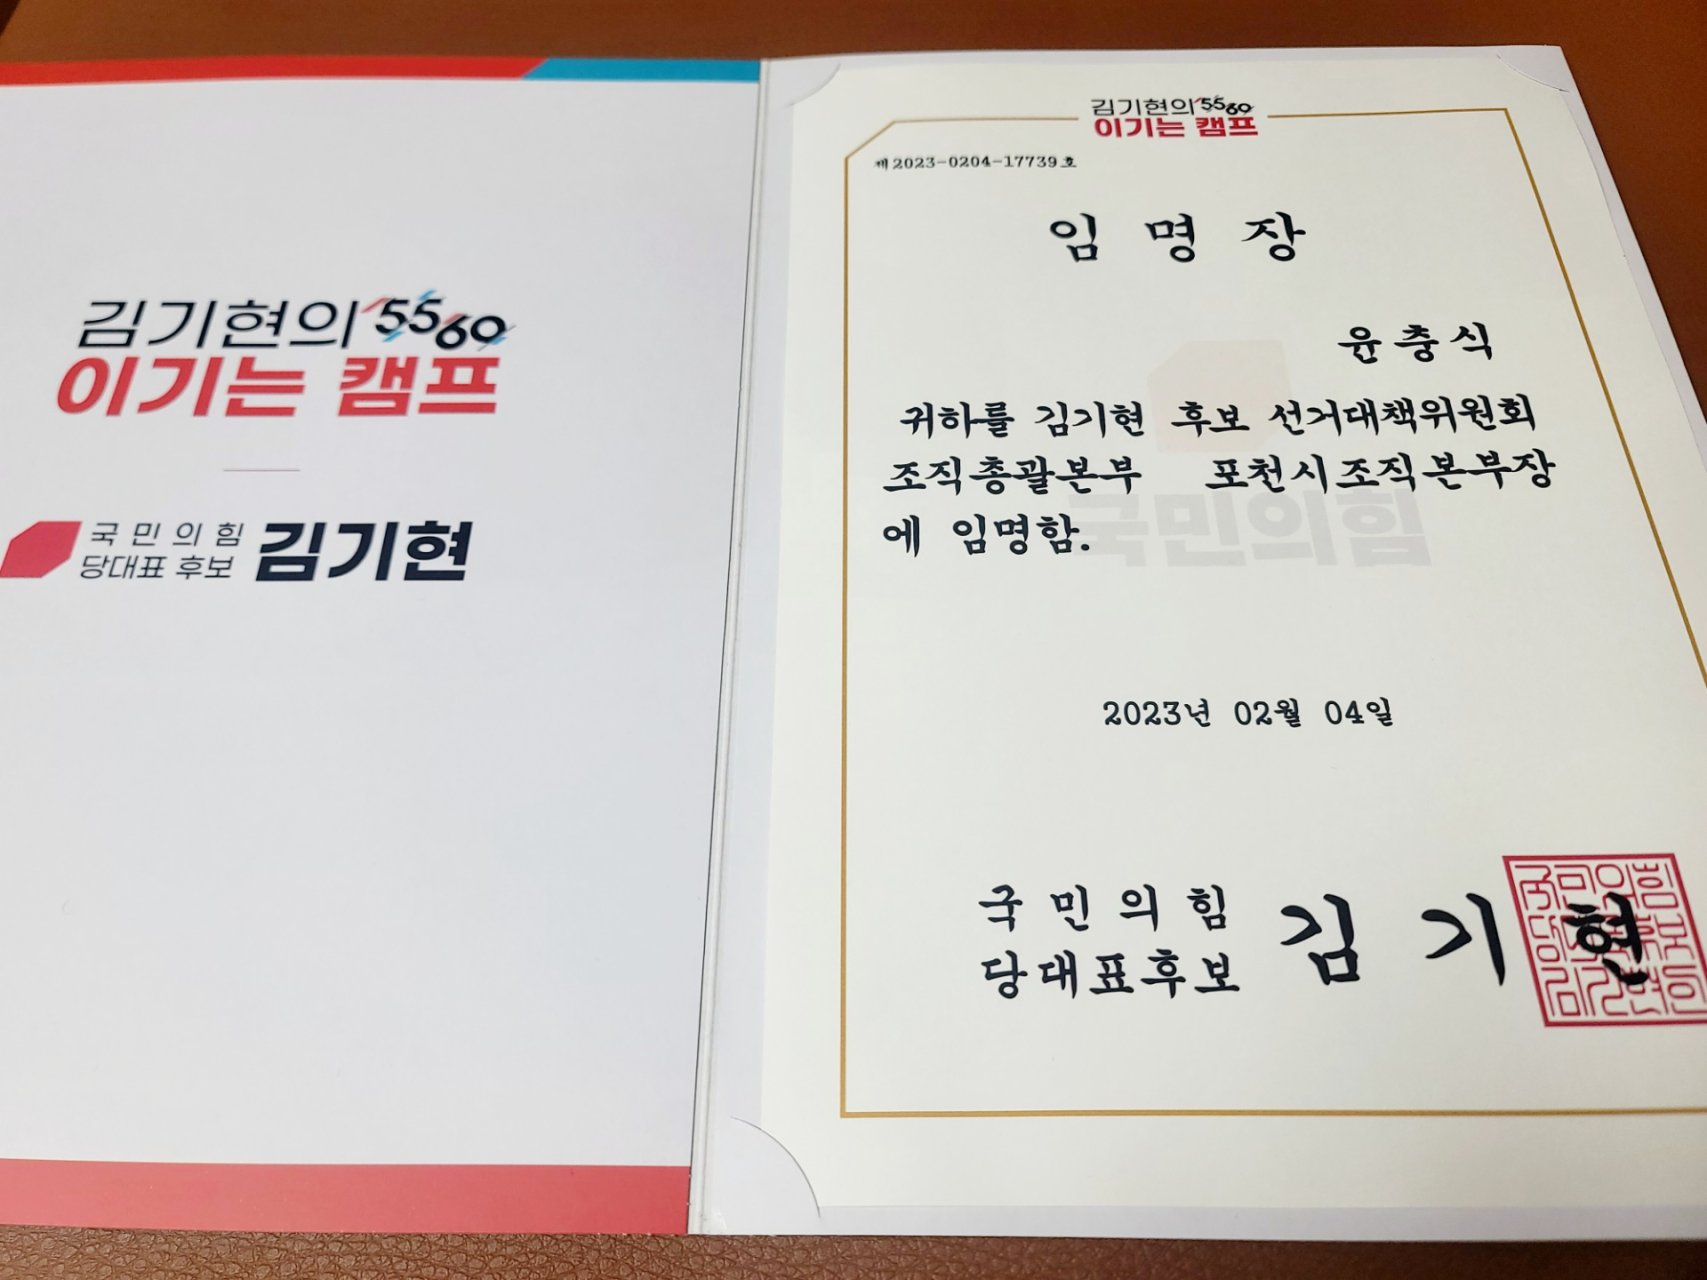 김기현의 5560
이기는 캠프
국민의힘
당대표 후보 김기현
김기현의 5560
이기는 캠프
제2023-0204-17739호
임 명 장
윤충식
귀하를 김기현 후보 선거대책위원회
조직총괄본부 포천시조직본부장
에 임명함.
국민의힘
2023년 02월 04일
국 민 의 힘
당대표후보 김 기 현